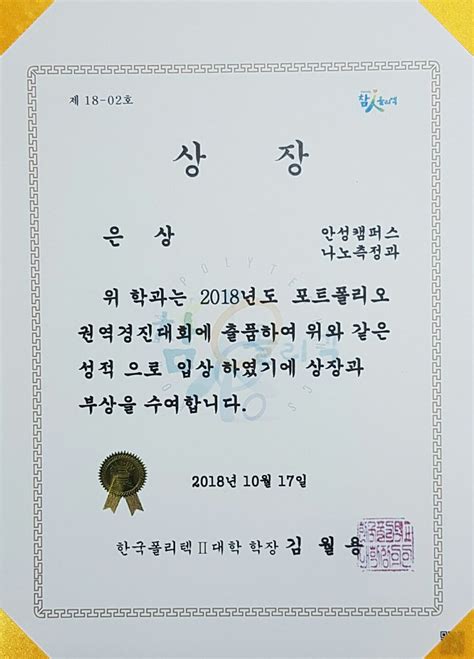 제 18-02호
참人폴리텍
상 장
은 상
안성캠퍼스
나노측정과
위 학과는 2018년도 포트폴리오
권역경진대회에 출품하여 위와 같은
성적 으로 입상 하였기에 상장과
부상을 수여합니다.
2018년 10월 17일
한국폴리텍Ⅱ대학 학장 김 월 용